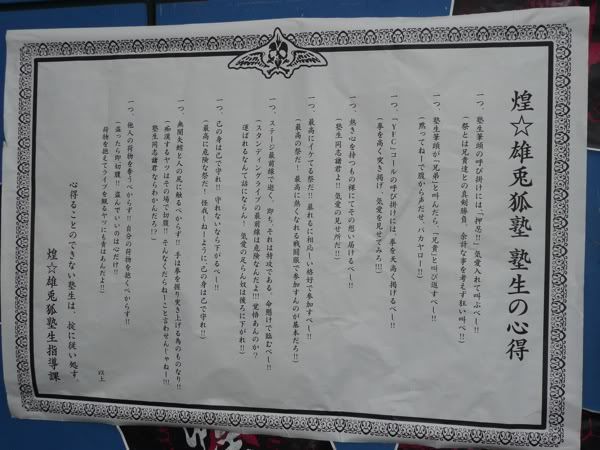 煌☆雄兎狐塾 塾生の心得
一つ、塾生筆頭の呼び掛けには、「押忍!!」気愛入れて叫ぶべし!!
(祭とは兄貴達との真剣勝負、余計な事を考えず狂い叫べ!!)
一つ、塾生筆頭が「兄弟」と叫んだら、「兄貴」と叫び返すべし!!
(黙ってねーで腹から声だせ、バカヤロー!!)
一つ、「YFC」コールの呼び掛けには、拳を天高く掲げるべし!!
(拳を高く突き掲げ、気愛を見せてみろ!!!)
一つ、熱き心を持つもの裸にてその想い届けるべし!!
(塾生同志諸君よ!! 気愛の見せ所だ!!)
一つ、最高にイケてる祭だ!! 暴れるに相応しい格好で参加すべし!!
(最高の祭だ! 最高に熱くなれる戦闘服で参加すんのが基本だろ!!)
一つ、ステージ最前線で逝く、即ち、それは特攻である、命懸けで臨むべし!!
(スタンディングライブの最前線は危険なんだよ!!! 覚悟あんのか?
運ばれるなんて話にならん!! 気愛の足らん奴は後ろに下がれ!!)
一つ、己の身は己で守れ!! 守れないなら下がるべし!!
(最高に危険な祭だ! 怪我しねーように、己の身は己で守れ!!)
一つ、無闇矢鱈と人の尻に触るべからず!! 手は拳を握り突き上げる為のものなり!!
(痴漢するヤツはその場で切腹!! そんなくだらねーこと言わせんじゃねー!!!
塾生同志諸君ならわかんだろ!?)
一つ、他人の荷物を奪うべからず!! 自分の荷物を抱くべからず!!
(盗ったら即切腹!! 盗んでいいのは心だけ!!
荷物を抱えてライブを観るヤツにも責はあんだよ!!)
以上
心得ることのできない塾生は、掟に従い処す。
煌☆雄兎狐塾生指導課